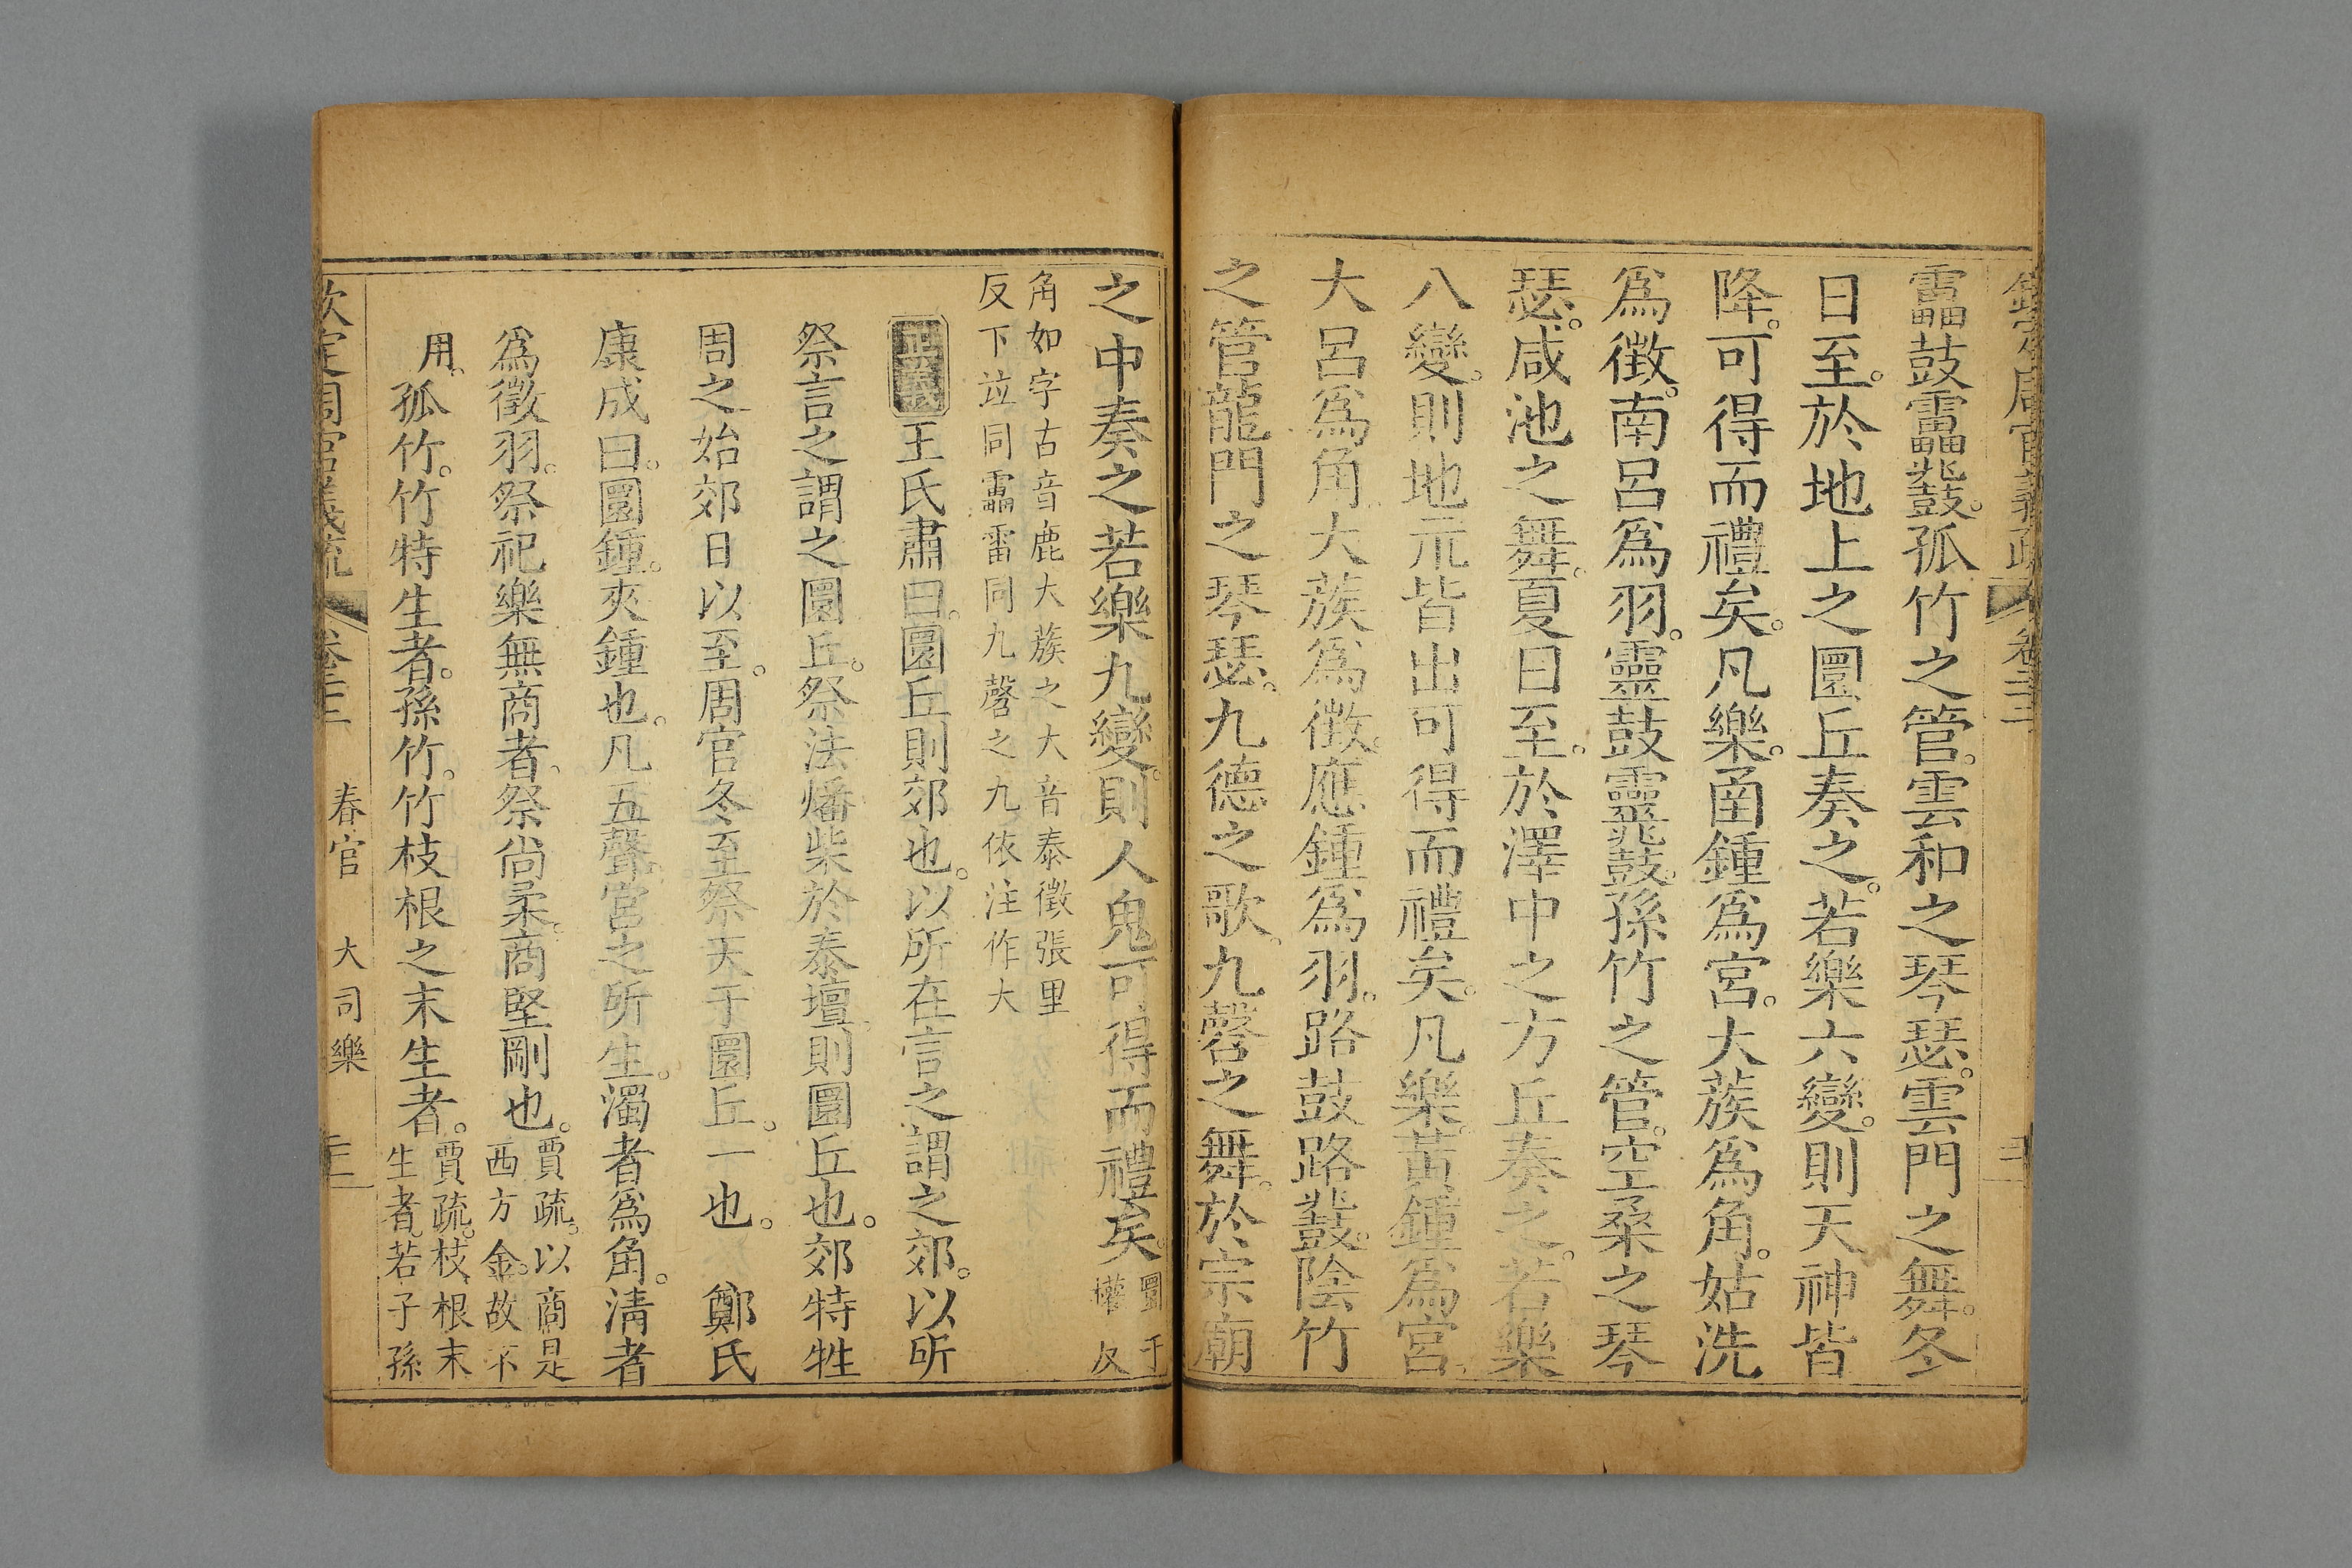 欽定周官義疏 卷二十二
靁鼓靁鼗。孤竹之管。雲和之琴瑟。雲門之舞。冬
日至。於地上之圜丘奏之。若樂六變。則天神皆
降。可得而禮矣。凡樂。函鍾爲宮。大蔟爲角。姑洗
爲徵。南呂爲羽。靈鼓靈鼗。孫竹之管。空桑之琴
瑟。咸池之舞。夏日至。於澤中之方丘奏之。若樂
八變。則地示皆出可得而禮矣。凡樂。黃鍾爲宮。
大呂爲角。大蔟爲徵。應鍾爲羽。路鼓路鼗。陰竹
之管龍門之琴瑟。九德之歌。九磬之舞。於宗廟
之中奏之若樂九變。則人鬼可得而禮矣。圜于
權反
角如字古音鹿大蔟之大音泰徵張里
反下竝同靁雷同九磬之九依注作大
正義 王氏肅曰。圜丘則郊也。以所在言之謂之郊。以所
祭言之謂之圜丘。祭法燔柴於泰壇。則圜丘也。郊特牲
周之始郊日以至。周官冬至祭天于圜丘。一也。 鄭氏
康成曰。圜鍾。夾鍾也。凡五聲。宮之所生。濁者爲角。淸者
爲徵羽。祭祀樂無商者。祭尚柔。商堅剛也。賈疏。以商是
西方金。故不
用。孤竹。竹特生者。孫竹。竹枝根之末生者。賈疏。枝根末
生者。若子孫
欽定周官義疏 卷二十二 春官 大司樂